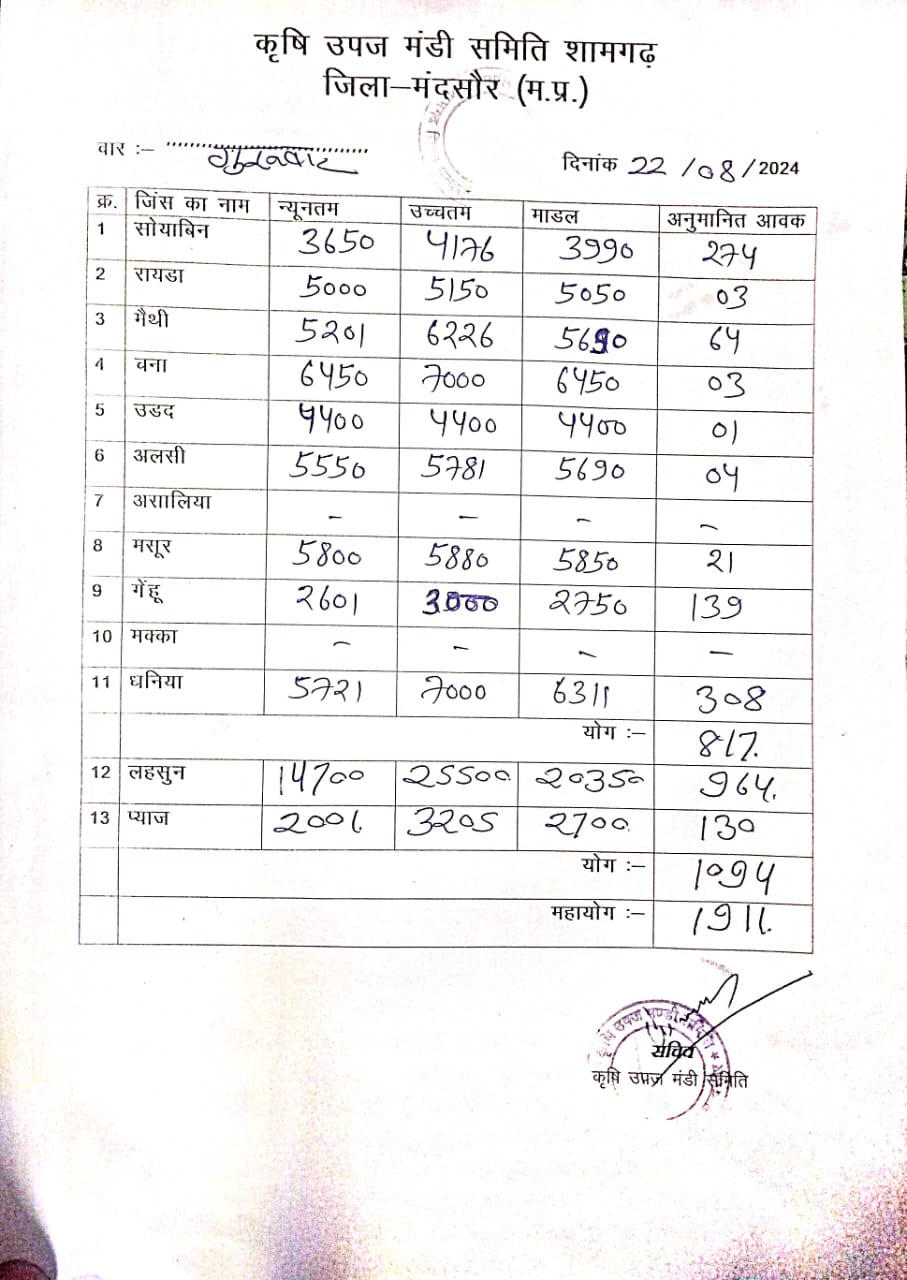 कृषि उपज मंडी समिति शामगढ़
जिला–मंदसौर (म.प्र.)
वार :– गुरूवार दिनांक 22/08/2024
क्र. जिंस का नाम न्यूनतम उच्चतम माडल अनुमानित आवक
1 सोयाबिन 3650 4176 3990 274
2 रायडा 5000 5150 5050 03
3 मैथी 5201 6226 5690 64
4 चना 6450 7000 6450 03
5 उडद 4400 4400 4400 01
6 अलसी 5550 5781 5690 04
7 असालिया – – – –
8 मसूर 5800 5880 5850 21
9 गेंहू 2601 3000 2750 139
10 मक्का – – – –
11 धनिया 5721 7000 6311 308
योग :– 817.
12 लहसुन 14700 25500 20350 964.
13 प्याज 2001. 3205 2700 130
योग :– 1094
महायोग :– 1911.
सचिव
कृषि उपज मंडी समिति